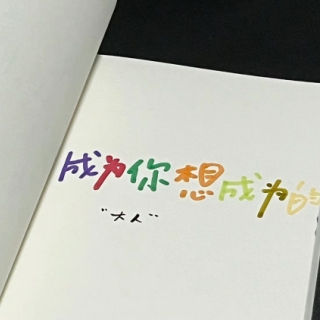 成为你想成为的
"大人"